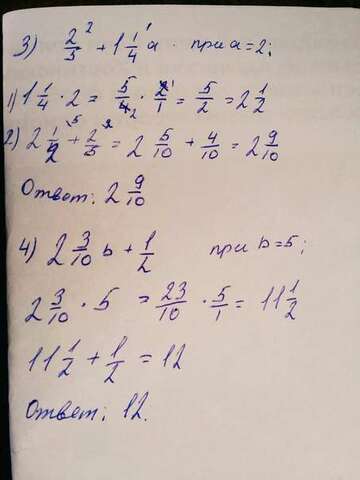 3) 2/5 ² + 1 1/4 ¹ a · при a=2;
1) 1 1/4 · 2 = 5/4₂ · 2¹/1 = 5/2 = 2 1/2
2) 2 1/2 ⁵ + 2/5 ² = 2 5/10 + 4/10 = 2 9/10
Ответ: 2 9/10
4) 2 3/10 b + 1/2 при b=5;
2 3/10 · 5 = 23/10 · 5/1 = 11 1/2
11 1/2 + 1/2 = 12
Ответ: 12.